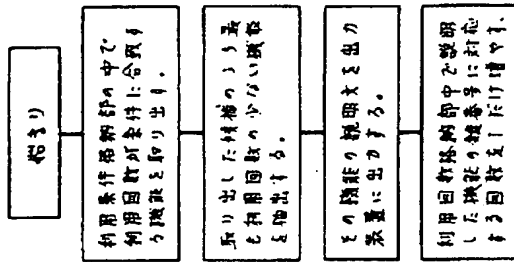 始まり
利用条件格納部の中で
利用回数が条件に合致す
る機能を取り出す。
取り出した候補のうち最
も利用回数の少ない機能
を抽出する。
その機能の説明文を出力
装置に出力する。
利用回数格納部中で説明
した機能の機番号に対応
する回数を1だけ増やす。